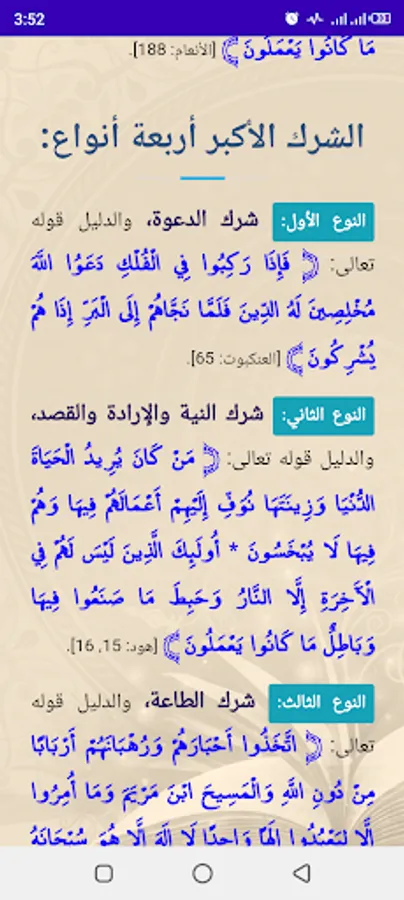 3:52
مَا كَانُوا يَعْمَلُونَ ﴾ [الأنعام: 188].
الشرك الأكبر أربعة أنواع:
النوع الأول: شرك الدعوة، والدليل قوله
تعالى: ﴿ فَإِذَا رَكِبُوا فِي الْفُلْكِ دَعَوُا اللَّهَ
مُخْلِصِينَ لَهُ الدِّينَ فَلَمَّا نَجَّاهُمْ إِلَى الْبَرِّ إِذَا هُمْ
يُشْرِكُونَ ﴾ [العنكبوت: 65].
النوع الثاني: شرك النية والإرادة والقصد،
والدليل قوله تعالى: ﴿ مَنْ كَانَ يُرِيدُ الْحَيَاةَ
الدُّنْيَا وَزِينَتَهَا نُوَفِّ إِلَيْهِمْ أَعْمَالَهُمْ فِيهَا وَهُمْ
فِيهَا لَا يُبْخَسُونَ * أُولَئِكَ الَّذِينَ لَيْسَ لَهُمْ فِي
الْآخِرَةِ إِلَّا النَّارُ وَحَبِطَ مَا صَنَعُوا فِيهَا
وَبَاطِلٌ مَا كَانُوا يَعْمَلُونَ ﴾ [هود: 15, 16].
النوع الثالث: شرك الطاعة، والدليل قوله
تعالى: ﴿ اتَّخَذُوا أَحْبَارَهُمْ وَرُهْبَانَهُمْ أَرْبَابًا
مِنْ دُونِ اللَّهِ وَالْمَسِيحَ ابْنَ مَرْيَمَ وَمَا أُمِرُوا
إِلَّا لِيَعْبُدُوا إِلَهًا وَاحِدًا لَا إِلَهَ إِلَّا هُوَ سُبْحَانَهُ